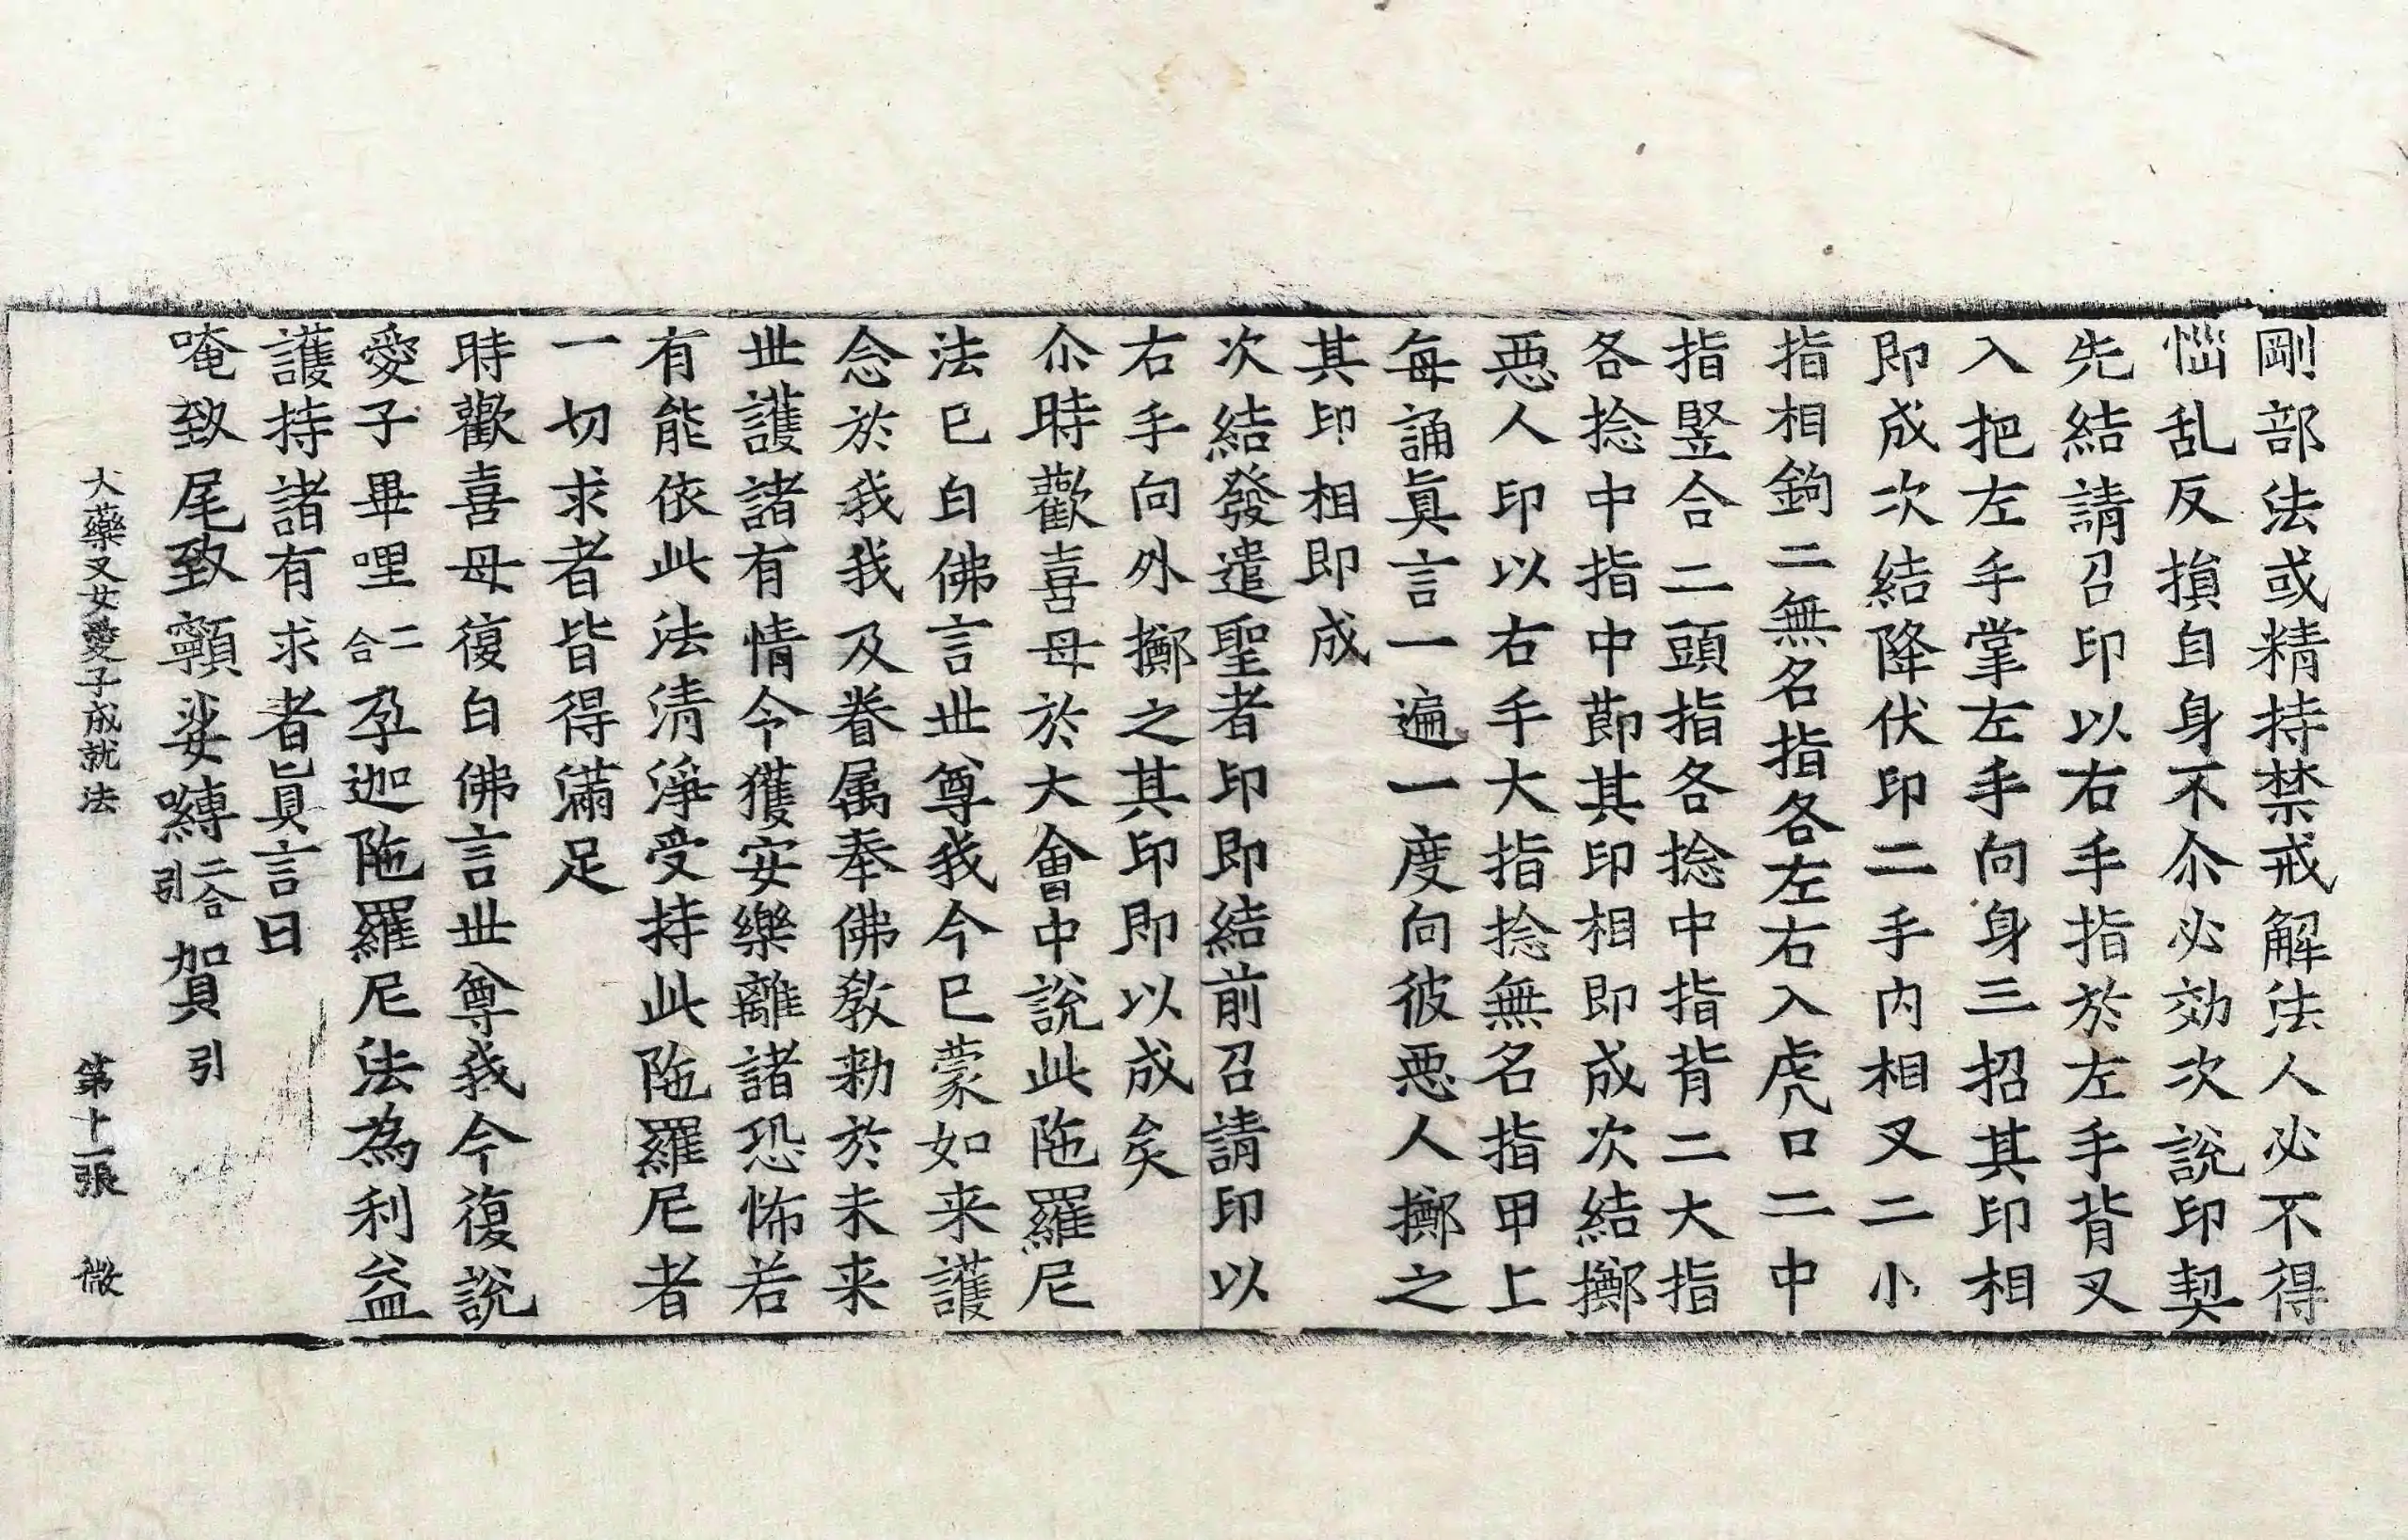 剛部法或精持禁戒解法人必不得
惱乱反損自身不尒必効次說印契
先結請召印以右手指於左手背叉
入把左手掌左手向身三招其印相
即成次結降伏印二手内相叉二小
指相鉤二無名指各左右入虎口二中
指竪合二頭指各捻中指背二大指
各捻中指中節其印相即成次結擲
惡人印以右手大指捻無名指甲上
每誦眞言一遍一度向彼惡人擲之
其印相即成
次結發遣聖者印即結前召請印以
右手向外擲之其印即以成矣
尒時歡喜母於大會中說此陁羅尼
法已白佛言世尊我今已蒙如来護
念於我我及眷属奉佛敎勑於未来
世護諸有情令獲安樂離諸恐怖若
有能依此法清淨受持此陁羅尼者
一切求者皆得滿足
時歡喜母復白佛言世尊我今復說
愛子畢哩二合孕迦陁羅尼法為利益
護持諸有求者眞言曰
唵致尾致顐娑嚩二合引賀引
大藥叉女愛子成就法 第十一張 微